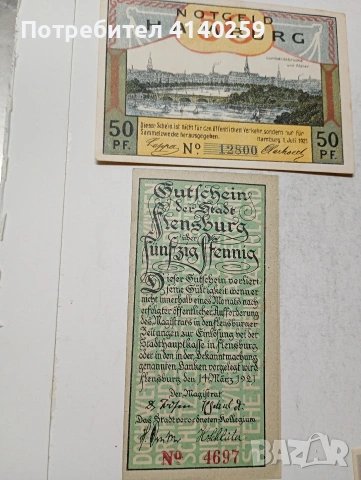 Потребител 4140259
NOTGELD
HAMBURG
Dieser Schein ist nicht für den öffentlichen Verkehr sondern nur für
Sammelzwecke herausgegeben. Hamburg 1. Juli 1921.
50
PF.
No. 12800
50
PF.
Gutschein
der Stadt
Flensburg
über
Fünfzig Pfennig
Dieser Gutschein verliert
seine Gültigkeit wenn er
nicht innerhalb eines Monats nach
erfolgter öffentlicher Aufforderung
des Magistrats in den Flensburger
Zeitungen zur Einlösung bei der
Stadthauptkasse in Flensburg
oder in den in der Bekanntmachung
genannten Banken vorgelegt wird
Flensburg den 14 März 1921
Der Magistrat
Das Stadtverordneten-Kollegium
No 4697
bazar.bg